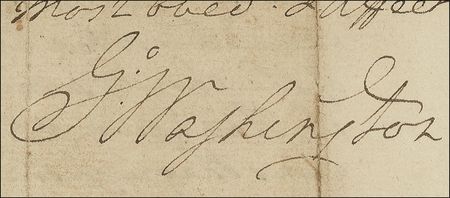 most obed. & affect
Go: Washington